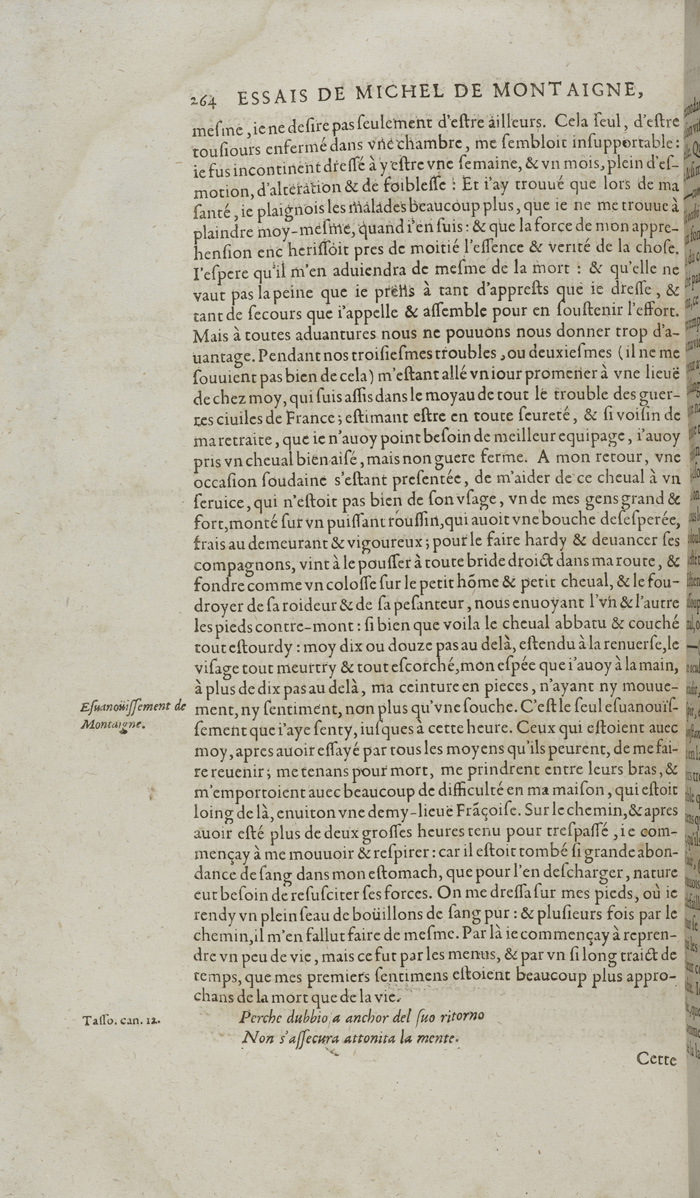 264 ESSAIS DE MICHEL DE MONTAIGNE,
meſme, ie ne deſire pas ſeulement d'eſtre ailleurs. Cela ſeul, d'eſtre
touſiours enfermé dans vne chambre, me ſembloit inſupportable:
ie fus incontinent dreſſé à y eſtre vne ſemaine, & vn mois, plein d'eſ-
motion, d'alteration & de foibleſſe: Et i'ay trouué que lors de ma
ſanté, ie plaignois les malades beaucoup plus, que ie ne me trouue à
plaindre moy-meſme, quand i'en ſuis: & que la force de mon appre-
henſion encheriſſoit pres de moitié l'eſſence & verité de la choſe.
I'eſpere qu'il m'en aduiendra de meſme de la mort: & qu'elle ne
vaut pas la peine que ie prens à tant d'appreſts que ie dreſſe, &
tant de ſecours que i'appelle & aſſemble pour en ſouſtenir l'effort.
Mais à toutes aduantures nous ne pouuons nous donner trop d'a-
uantage. Pendant nos troiſieſmes troubles, ou deuxieſmes (il ne me
ſouuient pas bien de cela) m'eſtant allé vn iour promener à vne lieuë
de chez moy, qui ſuis aſſis dans le moyau de tout le trouble des guer-
res ciuiles de France; eſtimant eſtre en toute ſeureté, & ſi voiſin de
ma retraite, que ie n'auoy point beſoin de meilleur equipage, i'auoy
pris vn cheual bien aiſé, mais non guere ferme. A mon retour, vne
occaſion ſoudaine s'eſtant preſentée, de m'aider de ce cheual à vn
ſeruice, qui n'eſtoit pas bien de ſon vſage, vn de mes gens grand &
fort, monté ſur vn puiſſant rouſſin, qui auoit vne bouche deſeſperée,
frais au demeurant & vigoureux; pour le faire hardy & deuancer ſes
compagnons, vint à le pouſſer à toute bride droict dans ma route, &
fondre comme vn coloſſe ſur le petit hõme & petit cheual, & le fou-
droyer de ſa roideur & de ſa peſanteur, nous enuoyant l'vn & l'autre
les pieds contre-mont: ſi bien que voila le cheual abbatu & couché
tout eſtourdy: moy dix ou douze pas au delà, eſtendu à la renuerſe, le
viſage tout meurtry & tout eſcorché, mon eſpée que i'auoy à la main,
à plus de dix pas au delà, ma ceinture en pieces, n'ayant ny mouue-
Eſuanoüiſſement de Montaigne.
ment, ny ſentiment, non plus qu'vne ſouche. C'eſt le ſeul eſuanouïſ-
ſement que i'aye ſenty, iuſques à cette heure. Ceux qui eſtoient auec
moy, apres auoir eſſayé par tous les moyens qu'ils peurent, de me fai-
re reuenir; me tenans pour mort, me prindrent entre leurs bras, &
m'emportoient auec beaucoup de difficulté en ma maiſon, qui eſtoit
loing de là, enuiron vne demy-lieuë Frãçoiſe. Sur le chemin, & apres
auoir eſté plus de deux groſſes heures tenu pour treſpaſſé, ie com-
mençay à me mouuoir & reſpirer: car il eſtoit tombé ſi grande abon-
dance de ſang dans mon eſtomach, que pour l'en deſcharger, nature
eut beſoin de reſuſciter ſes forces. On me dreſſa ſur mes pieds, où ie
rendy vn plein ſeau de boüillons de ſang pur: & pluſieurs fois par le
chemin, il m'en fallut faire de meſme. Par là ie commençay à repren-
dre vn peu de vie, mais ce fut par les menus, & par vn ſi long traict de
temps, que mes premiers ſentimens eſtoient beaucoup plus appro-
chans de la mort que de la vie.
Taſſo. can. 12.
Perche dubbioſa anchor del ſuo ritorno
Non s'aſſecura attonita la mente.
Cette